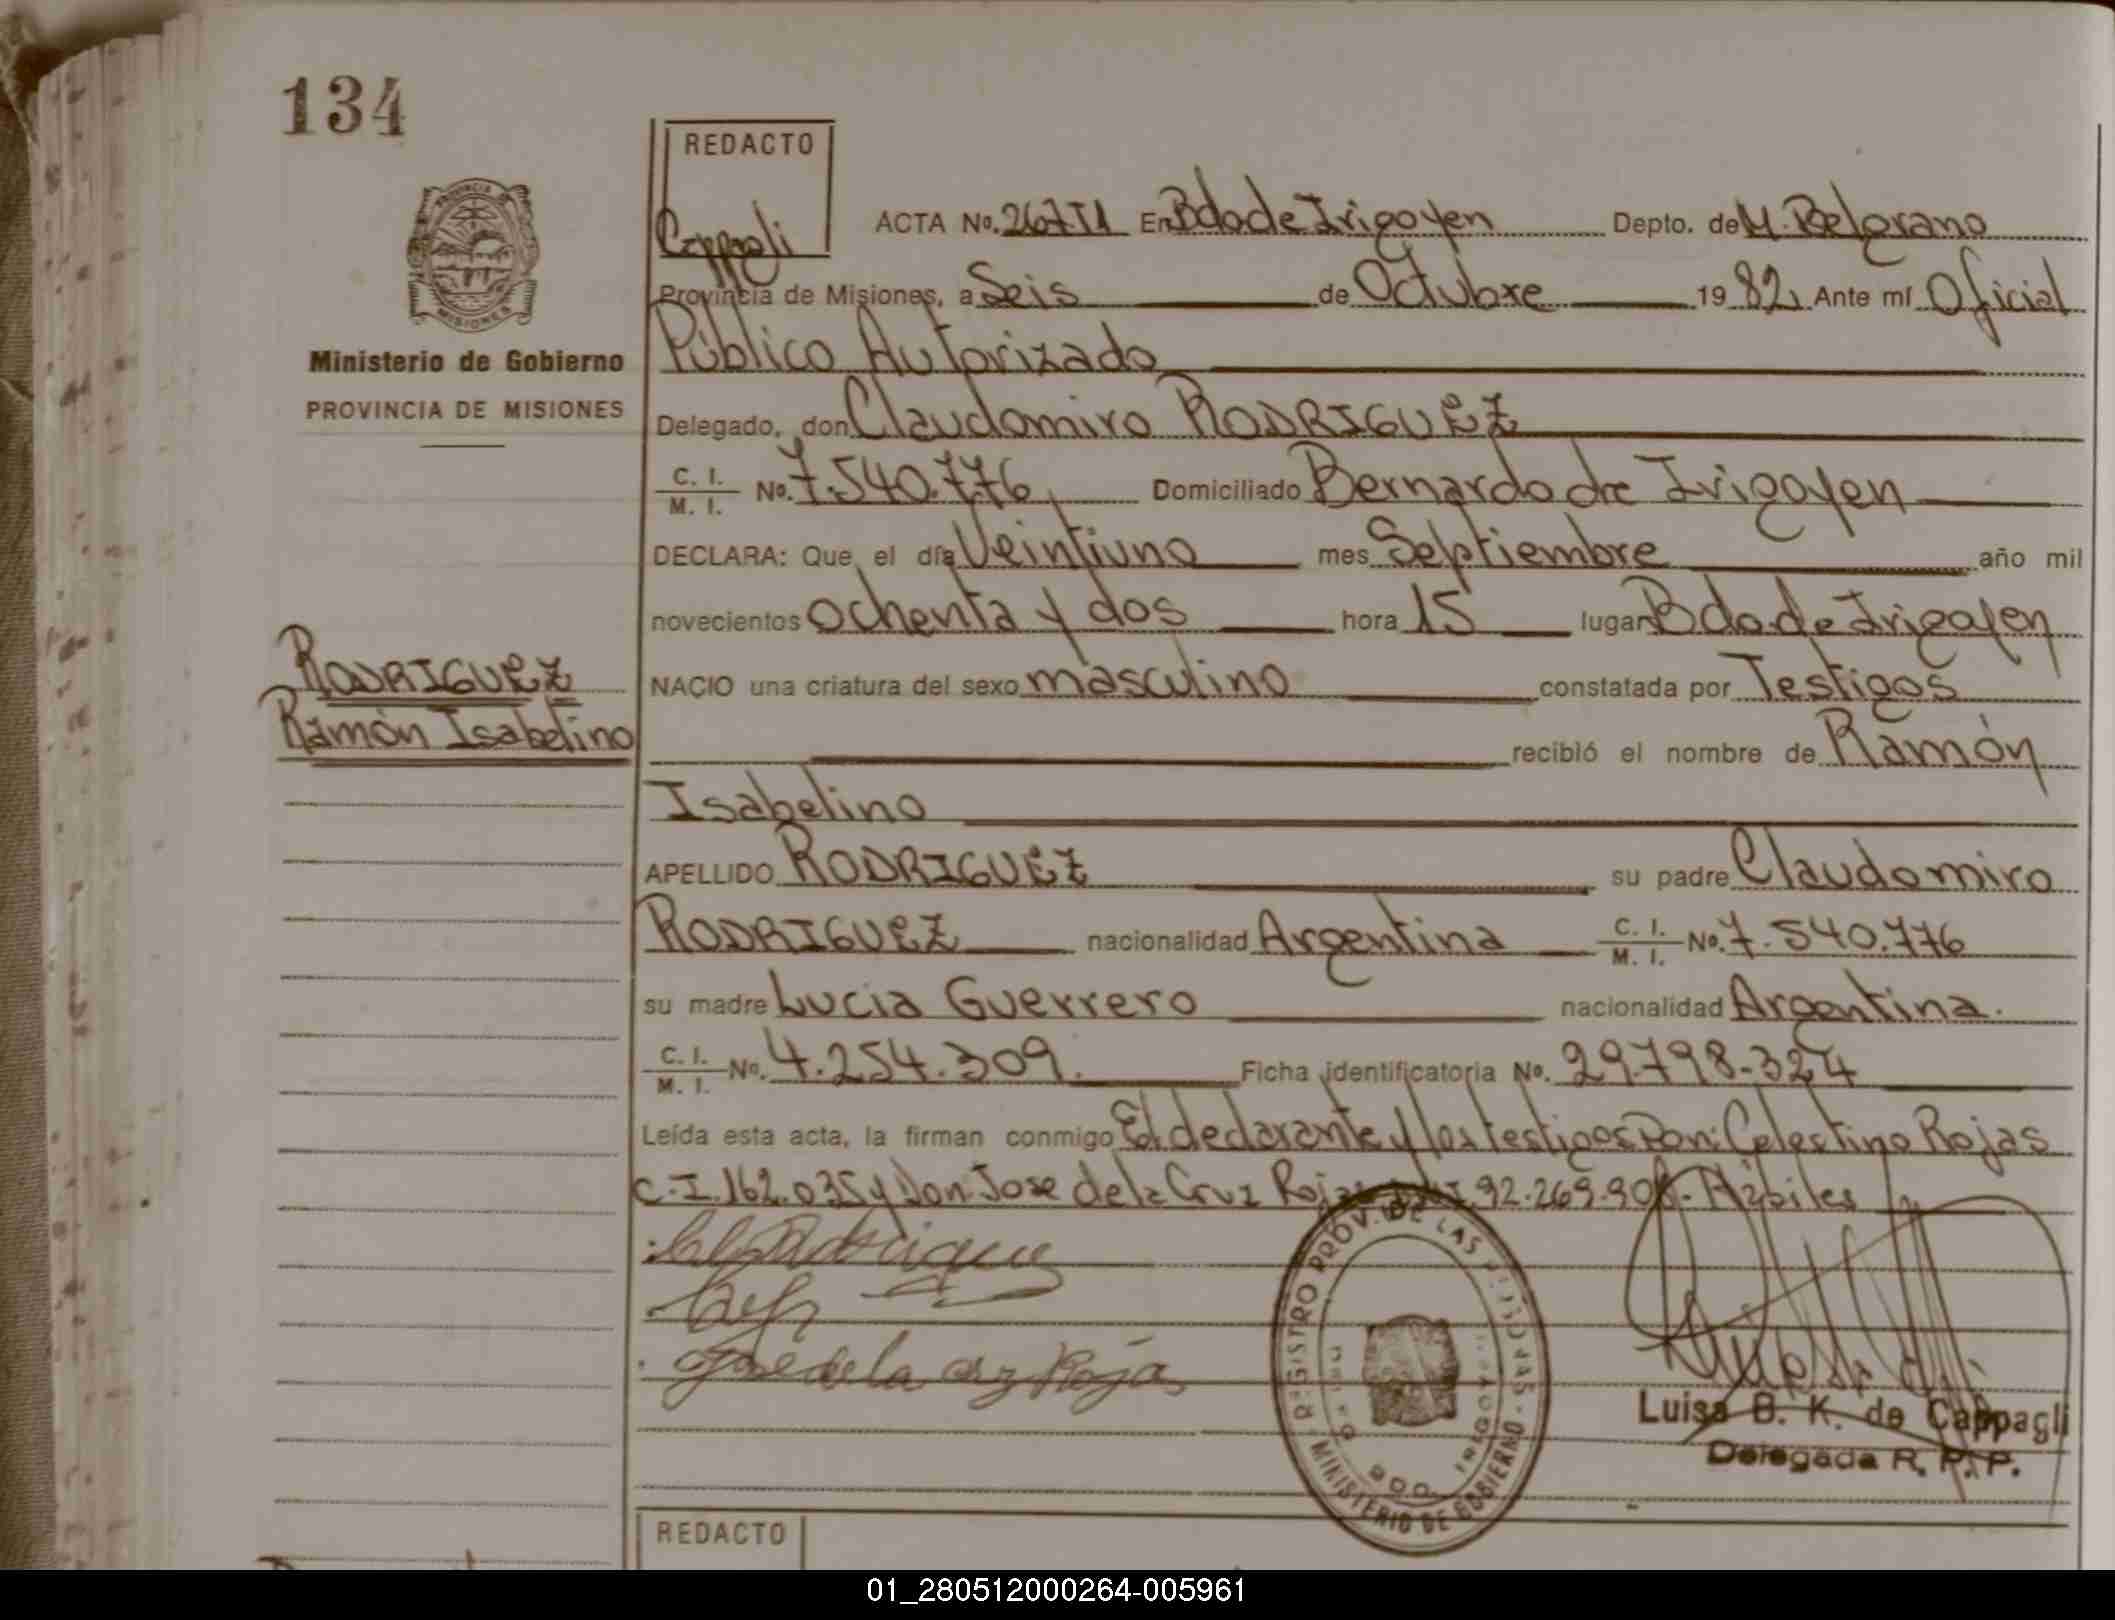 134
REDACTO
Cappagli
PROVINCIA DE
MISIONES
Ministerio de Gobierno
PROVINCIA DE MISIONES
ACTA No. 267 T1 En Bdo de Irigoyen Depto. de M. Belgrano
Provincia de Misiones, a Seis de Octubre 19 82, Ante mí Oficial
Público Autorizado
Delegado, don Claudomiro RODRIGUEZ
C. I. / M. I. No. 7.540.776, Domiciliado Bernardo de Irigoyen
DECLARA: Que, el día Veintiuno mes Septiembre año mil
novecientos ochenta y dos hora 15 lugar Bdo. de Irigoyen
RODRIGUEZ
Ramón Isabelino
NACIO una criatura del sexo masculino constatada por Testigos
recibió el nombre de Ramón
Isabelino
APELLIDO RODRIGUEZ su padre Claudomiro
RODRIGUEZ nacionalidad Argentina C. I. / M. I. No. 7.540.776
su madre Lucia Guerrero nacionalidad Argentina.
C. I. / M. I. No. 4.254.309. Ficha identificatoria No. 29.798.324
Leída esta acta, la firman conmigo El declarante y los testigos Don: Celestino Rojas
C.I. 162.035 y Don Jose de la Cruz Rojas 92.269.90 - Hábiles
Jose de la cruz Rojas
REGISTRO PROV. DE LAS PERSONAS
MINISTERIO DE GOBIERNO
BDO. IRIGOYEN
Luisa B. K. de Cappagli
Delegada R. P. P.
REDACTO
01_280512000264-005961